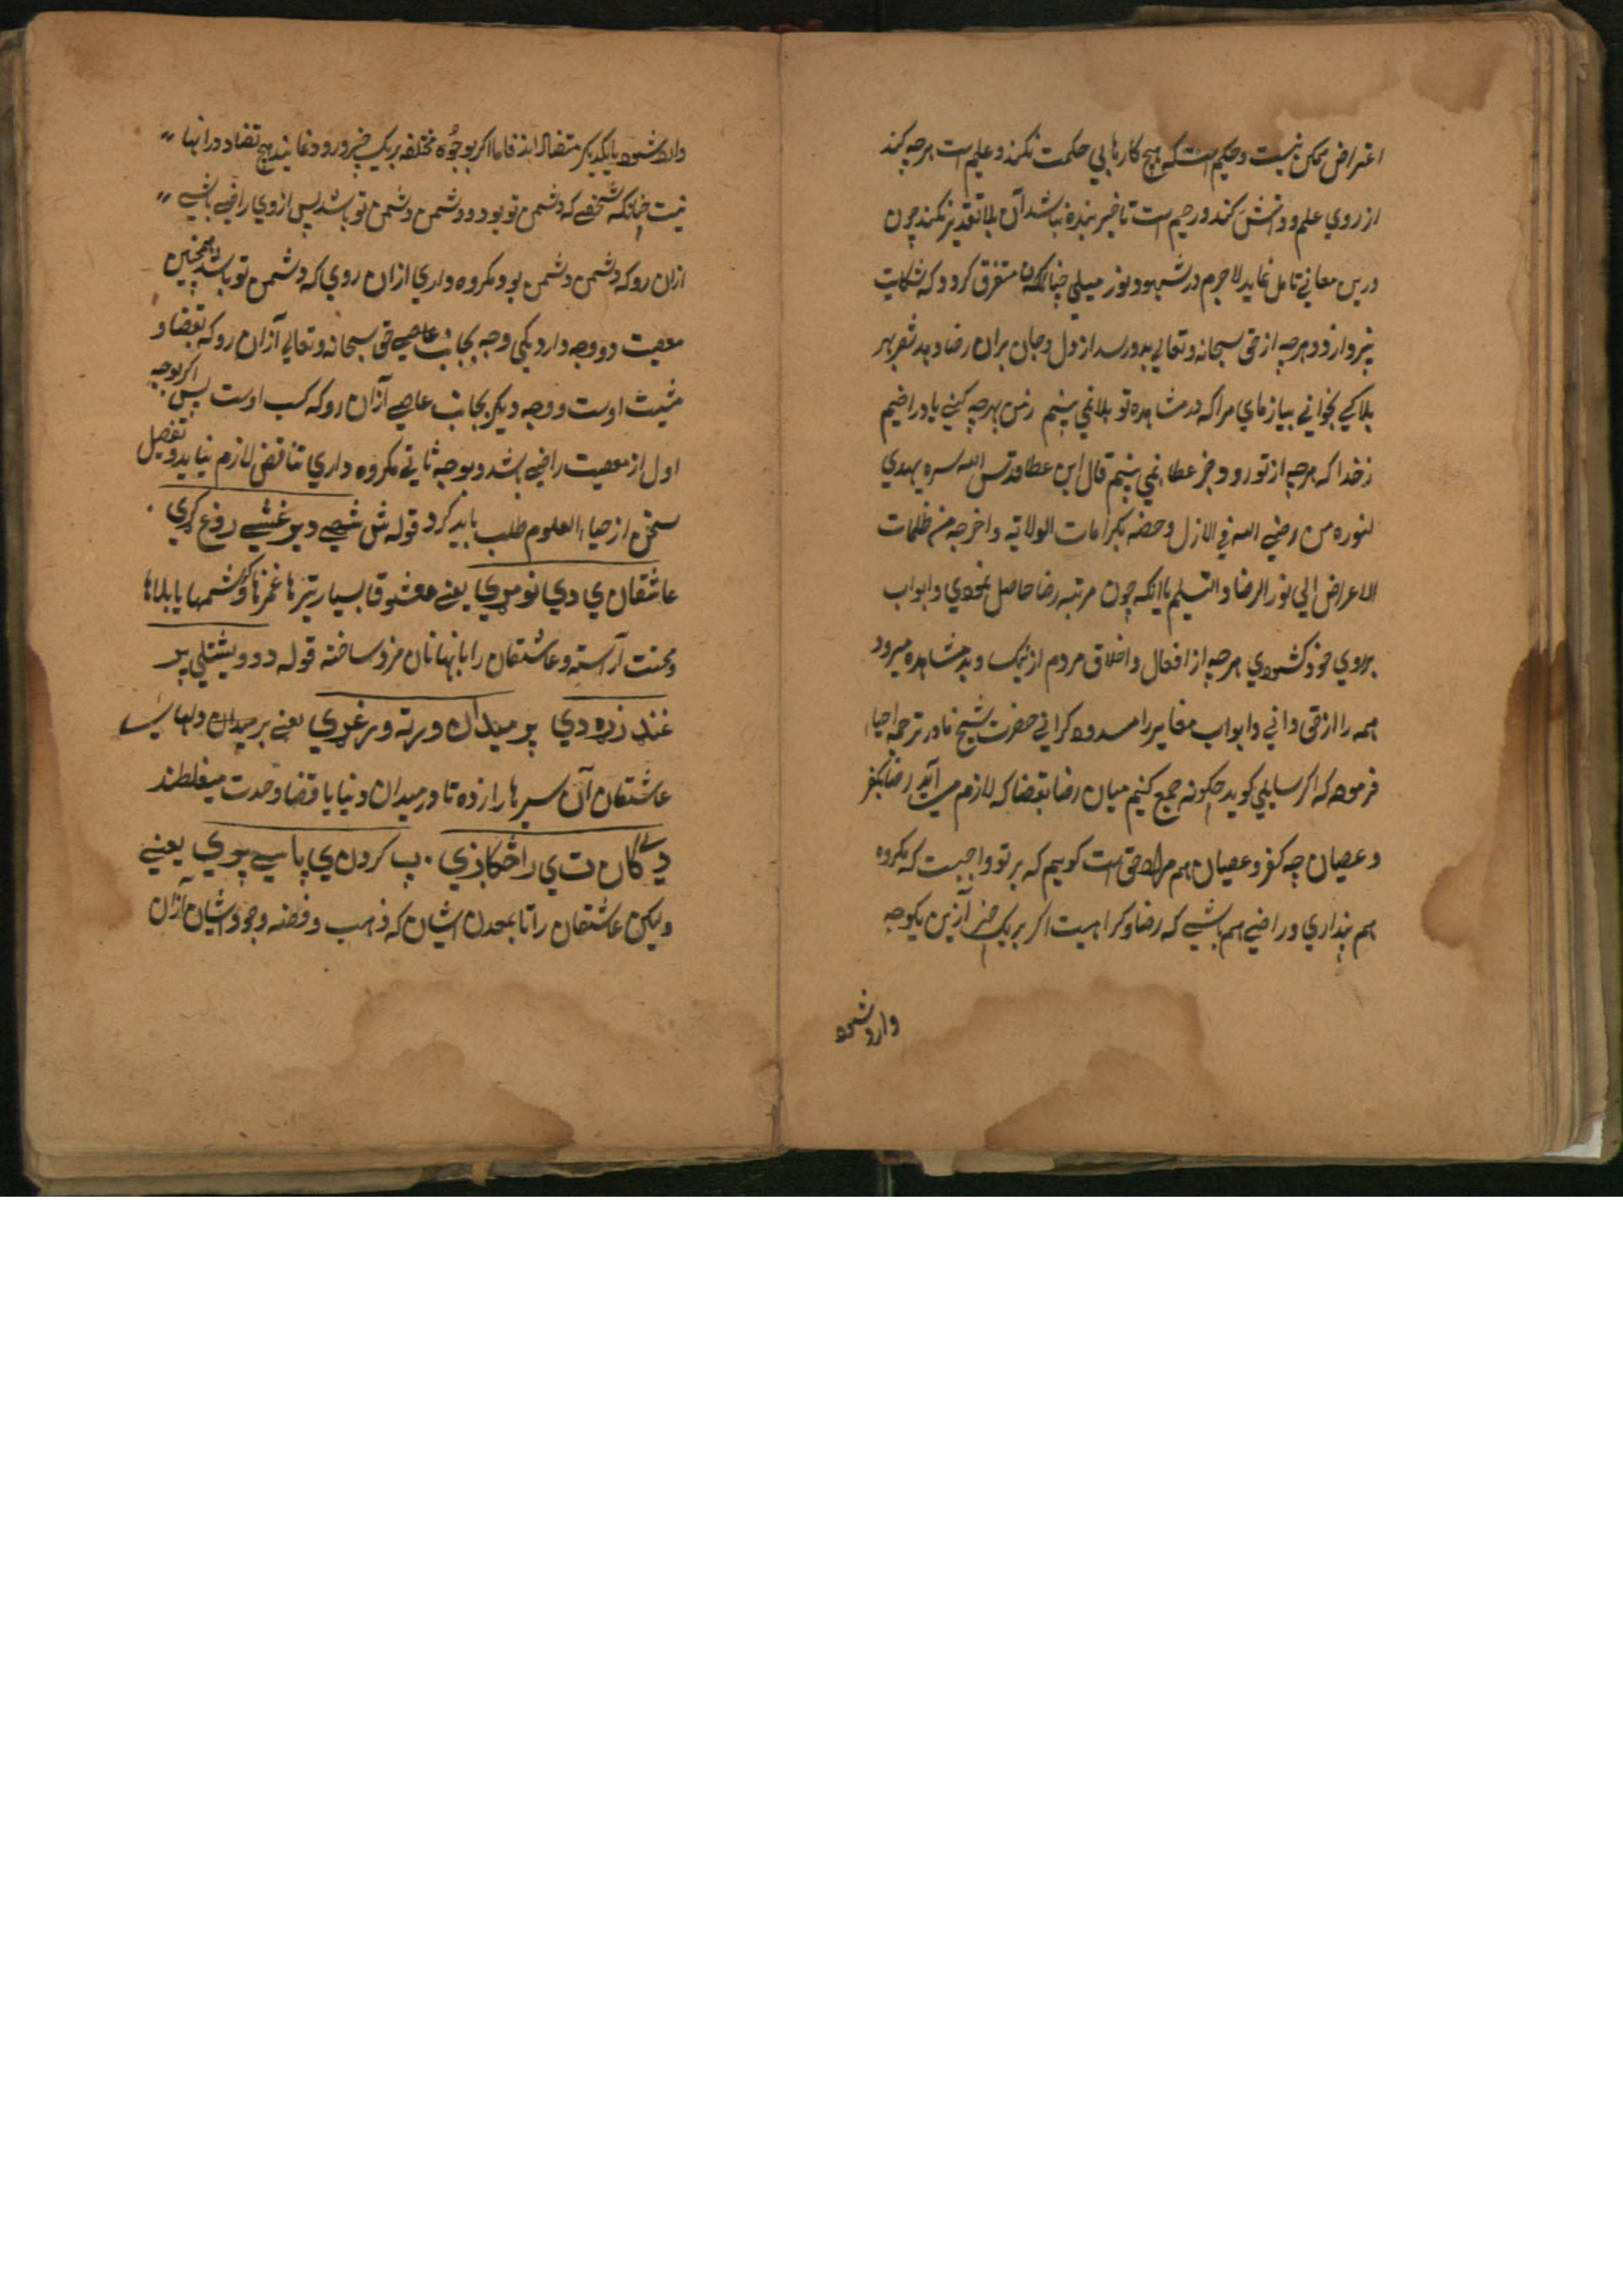 اعتراض ممکن نیست و حکیم است که هیچ کارها بی حکمت نکند و علیم است هرچه کند
از روی علم و دانش کند و رحیم است تا خیر بنده نباشد آن بلا تقدیر نکند چون
درین معانی تامل نماید لاجرم در شهود نور مبلی چنان متفرق کردد که شکایت
نپردازد و هرچه از حق سبحانه و تعالی بدو رسد از دل و جان بران رضا دهد شعر بهر
بلا کی بخوانی بیازمای مرا که در مشاهده تو بلا نمی بینم ز من بهرچه کنی یاد راضیم
ز خدا که هرچه از تو رود جز عطا نمی بینم قال ابن عطا قدس الله سره یهدی
لنوره من رضی الله فی الازل و خصه بکرامات الولایة و اخرجه من ظلمات
الاعراض الی نور الرضا و التسلیم یا انکه چون مرتبه رضا حاصل نمودی و ابواب
بروی خود کشودی هرچه از افعال و اخلاق مردم از نیک و بد مشاهده میرود
همه را از حق دانی و ابواب مغایر را مسدود کرانی حضرت شیخ ما در ترجمه احیا
فرموده که اکر سایلی کوید چکونه جمع کنیم میان رضا بقضا که لازم می آید رضا بکفر
و عصیان چه کفر و عصیان هم مراد حق است کوییم که بر تو واجبست که مکروه
هم پنداری و راضی هم باشی که رضا و کراهیت اکر بر یک چیز از یک وجه
وارد شود
وارد شود بایکدیکر متضادند فاما اکر بوجوه مختلفه بر یک چیز ورود نمایند هیچ تضاد در انها
نیست چنانکه شخصی که دشمن تو بود و دشمن دشمن تو باشد پس از وی راضی باشی
ازان رو که دشمن دشمن بود و مکروه داری ازان روی که دشمن تو باشد همچنین
معصیت دو وجه دارد یکی وجه بجانب حق سبحانه و تعالی ازان رو که بقضا و
مشیت اوست و وجه دیکر بجانب عاصی ازان رو که کسب اوست پس اکر بوجه
اول از معصیت راضی باشد و بوجه ثانی مکروه داری تناقض لازم نیاید و تفصیل
سخن از احیاء العلوم طلب باید کرد قوله
عاشقان ی دی نومړی یعنی معشوقا بسیار تیرها غمزها و کرشمها یا بلاها
و محنت آراسته و عاشقان را بانها نامزد ساخته قوله دوویشتلی پر
غند زده دی پر میدان ورته ورغړی یعنی بر میدان دلهای
عاشقان آن سرها را زده تا در میدان دنیا یا قضا و حدت میغلطند
دی کان ت ی راڅکاږی پ کردن ی پاسی پوری یعنی
ولیکن عاشقان را تا بمعدن ایشان که ذهب و فضه وجود ایشان ازان